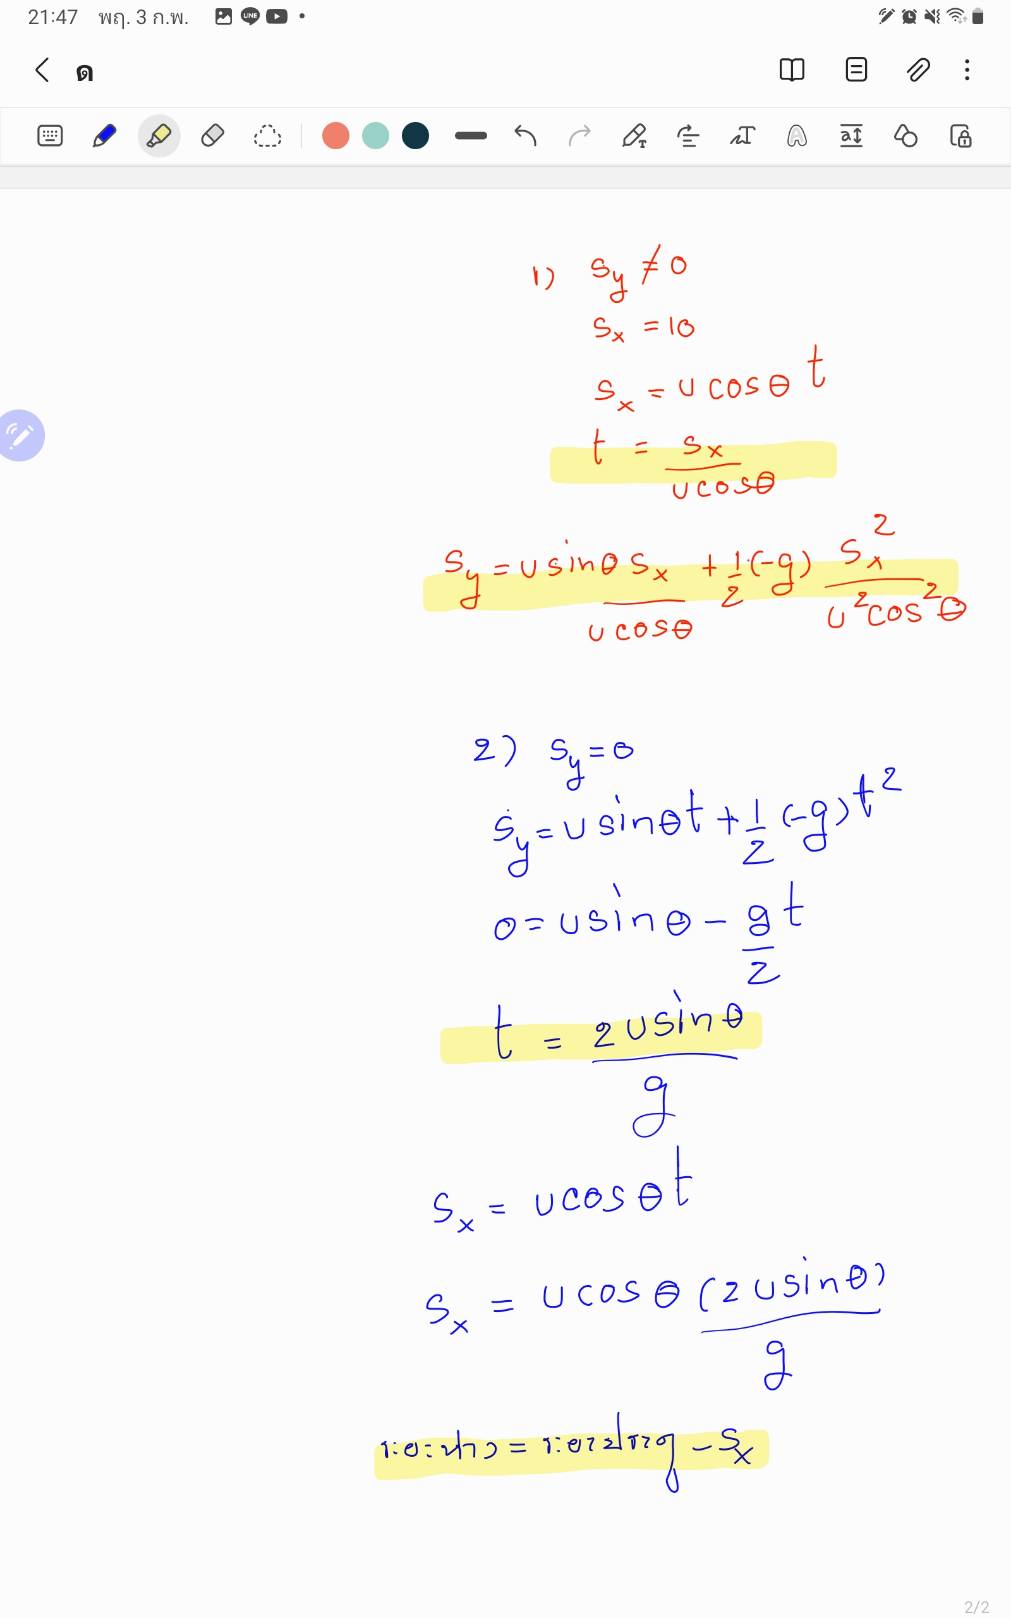 21:47 พฤ. 3 ก.พ.
ด
1) Sy ≠ 0
Sx = 10
Sx = u cosθ t
t = Sx / u cosθ
Sy = u sinθ Sx / u cosθ + 1/2 (-g) Sx² / u² cos² θ
2) Sy = 0
Sy = u sinθ t + 1/2 (-g) t²
0 = u sinθ - g/2 t
t = 2 u sinθ / g
Sx = u cosθ t
Sx = u cosθ (2 u sinθ) / g
= - Sx
2/2